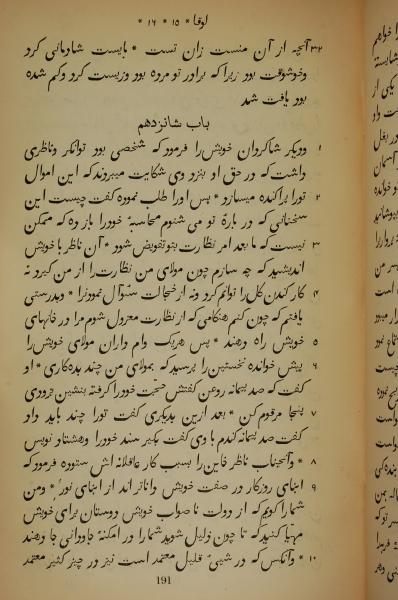 لوقا * ۱۵ * ۱۶ *
۳۲ آنچه از آن منست زان تست * بایست شادمانی کرد
وخوشوقت بود زیرا که برادر تو مرده بود وزیست کرد وکم شده
بود یافت شد
باب شانزدهم
۱ ودیکر شاکردان خویش را فرمود که شخصی بود توانکر وناظری
داشت که در حق او نزد وی شکایت میبردند که این اموال
۲ تورا پراکنده میسازد * پس اورا طلب نموده کفت چیست این
سخنانی که در بارهٔ تو می شنوم محاسبهٔ خودرا باز ده که ممکن
۳ نیست که ما بعد امر نظارت بتو تفویض شود * آن ناظر با خویش
اندیشید که چه سازم چون مولای من نظارت را از من کیرد نه
۴ کار کندن کل را توانم کرد ونه از خجالت سئوال نمود * وبدرستی
یافتم که چون کنم هنکامی که از نظارت معزول شوم مرا در خانهای
۵ خویش راه دهند * پس هریک وام داران مولای خویش را
۶ پیش خوانده نخستین را پرسید که بمولای من چند بدهکاری * او
کفت که صد پیمانه روغن کفتش حجت خودرا کرفته بنشین وبزودی
۷ پنجا مرقوم کن * بعد ازین بدیکری کفت تورا چند باید داد
کفت صد پیمانه کندم با وی کفت بکیر سند خودرا وهشتاد نویس
۸ * وآنجناب ناظر خاین را بسبب کار عاقلانه اش ستوده فرمود که
۹ ابنای روزکار در صفت خویش داناتر اند از ابنای نور * ومن
شمارا کویم که از دولت نا صواب خویش دوستان برای خویش
مهیا کنید که تا چون ذلیل شوید شمارا در امکنهٔ جاودانی جا دهند
۱۰ * وآنکس که در شیئی قلیل معتمد است نیز در چیز کثیر معتمد
191